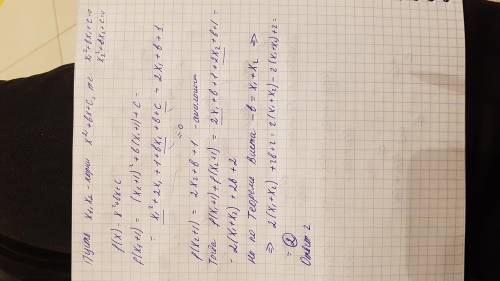 Пусть x₁, x₂ - корни x²+bx+c, т.е. x₁²+bx₁+c=0
x₂²+bx₂+c=0
f(x) = x²+bx+c
f(x₁+1) = (x₁+1)²+b(x₁+1)+c =
= x₁²+2x₁+1+bx₁+b+c = 2x₁+b+1
=0
f(x₂+1) = 2x₂+b+1 - аналогично
Тогда f(x₁+1)+f(x₂+1) = 2x₁+b+1+2x₂+b+1 =
= 2(x₁+x₂)+2b+2
Но по теореме Виета -b = x₁+x₂ ⇒
⇒ 2(x₁+x₂)+2b+2 = 2(x₁+x₂)-2(x₁+x₂)+2 =
= 2
Ответ 2